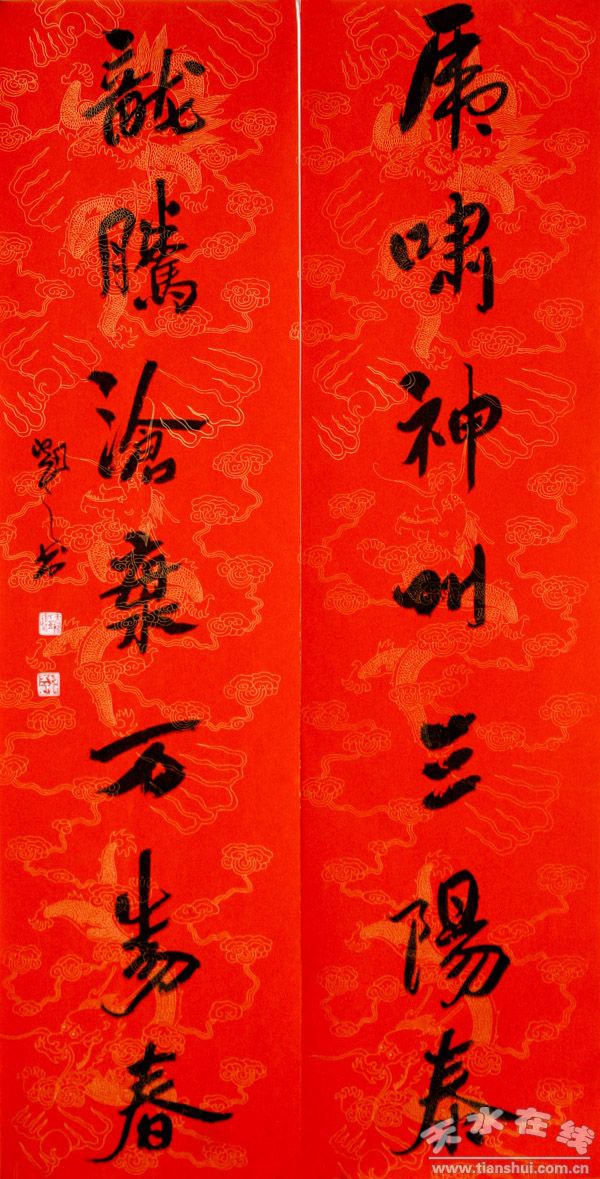 虎嘯神州三陽泰
龍騰滄桑万物春
天水在线
www.tianshui.com.cn